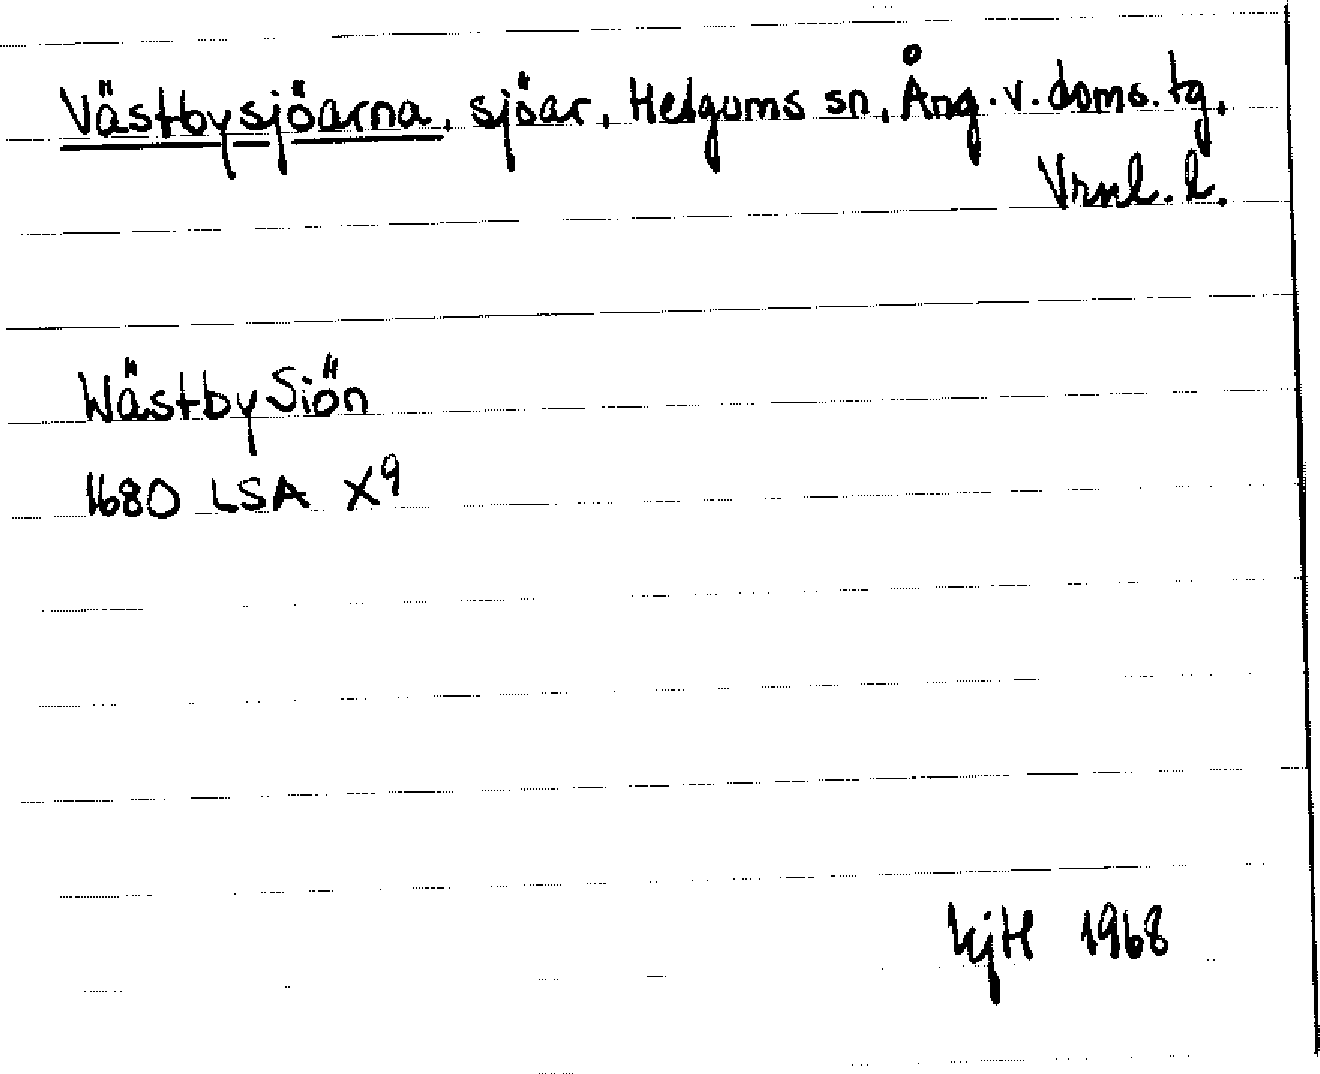 Västbysjöarna, sjöar, Helgums sn, Ång. v. doms. tg,
Vrnl. l.
WästbySiön
1680 LSA X9
KjH 1968